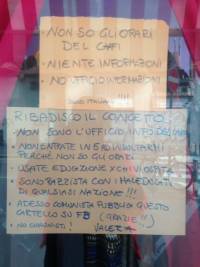 NON SO GLI ORARI
DEL
• NIENTE INFORMAZIONI
• NO UFFICIO INFORMAZIONI
SONO ITALIANA!!!!
RIBADISCO IL CONCETTO
• NON SONO L'UFFICIO INFO DEL
• NON ENTRATE IN E AD INSULTARMI
PERCHÉ NON SO GLI ORARI
• USATE EDUCAZIONE X CHI VI OSPITA
• SONO RAZZISTA CON I MALEDUCATI
DI QUALSIASI NAZIONE!!!!
• ADESSO COMUNISTA PUBBLICA QUESTO
CARTELLO SU FB (GRAZIE!!!)
• NO
VALERIA